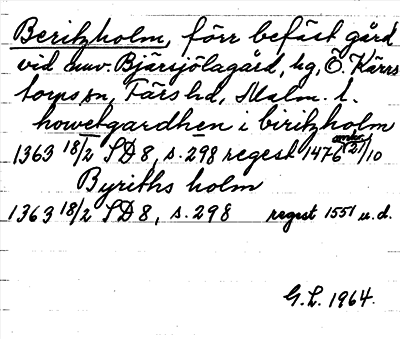 Beritzholm, förr befäst gård
vid nuv. Bjärsjölagård, hg, Ö. Kärrs
torps sn, Färs hd, Malm. l.
howetgardhen i biritzholm
1363 18/2 SD 8, s. 298 regest 1476 (omkr. 21)/10
Byriths holm
1363 18/2 SD 8, s. 298 regest 1551 u. d.
G. L. 1964.